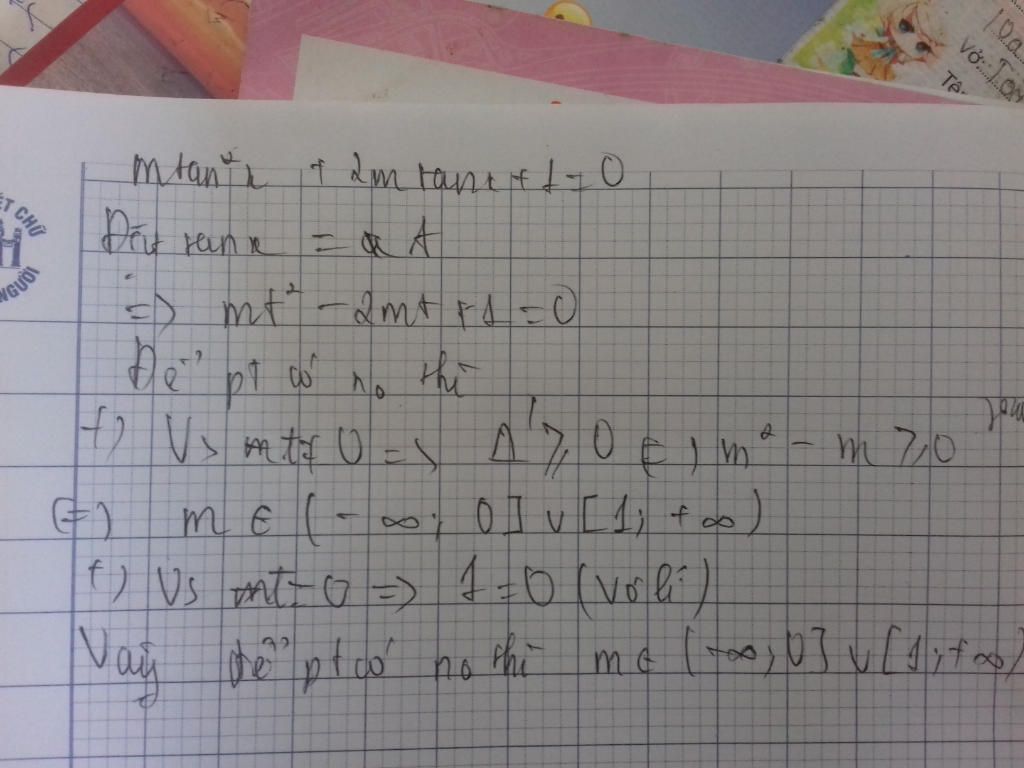 Vở:
Tê:
ẾT CHỮ
NGƯỜI
m tan²x + 2m tanx + 1 = 0
Đặt tanx = t
=> mt² - 2mt + 1 = 0
Để pt có no thì
+) Vs m ≠ 0 => Δ' ≥ 0 <=> m² - m ≥ 0
<=> m ∈ (-∞; 0] ∪ [1; +∞)
+) Vs m = 0 => 1 = 0 (vô lí)
Vaỹ để pt có no thì m ∈ (-∞; 0] ∪ [1; +∞)